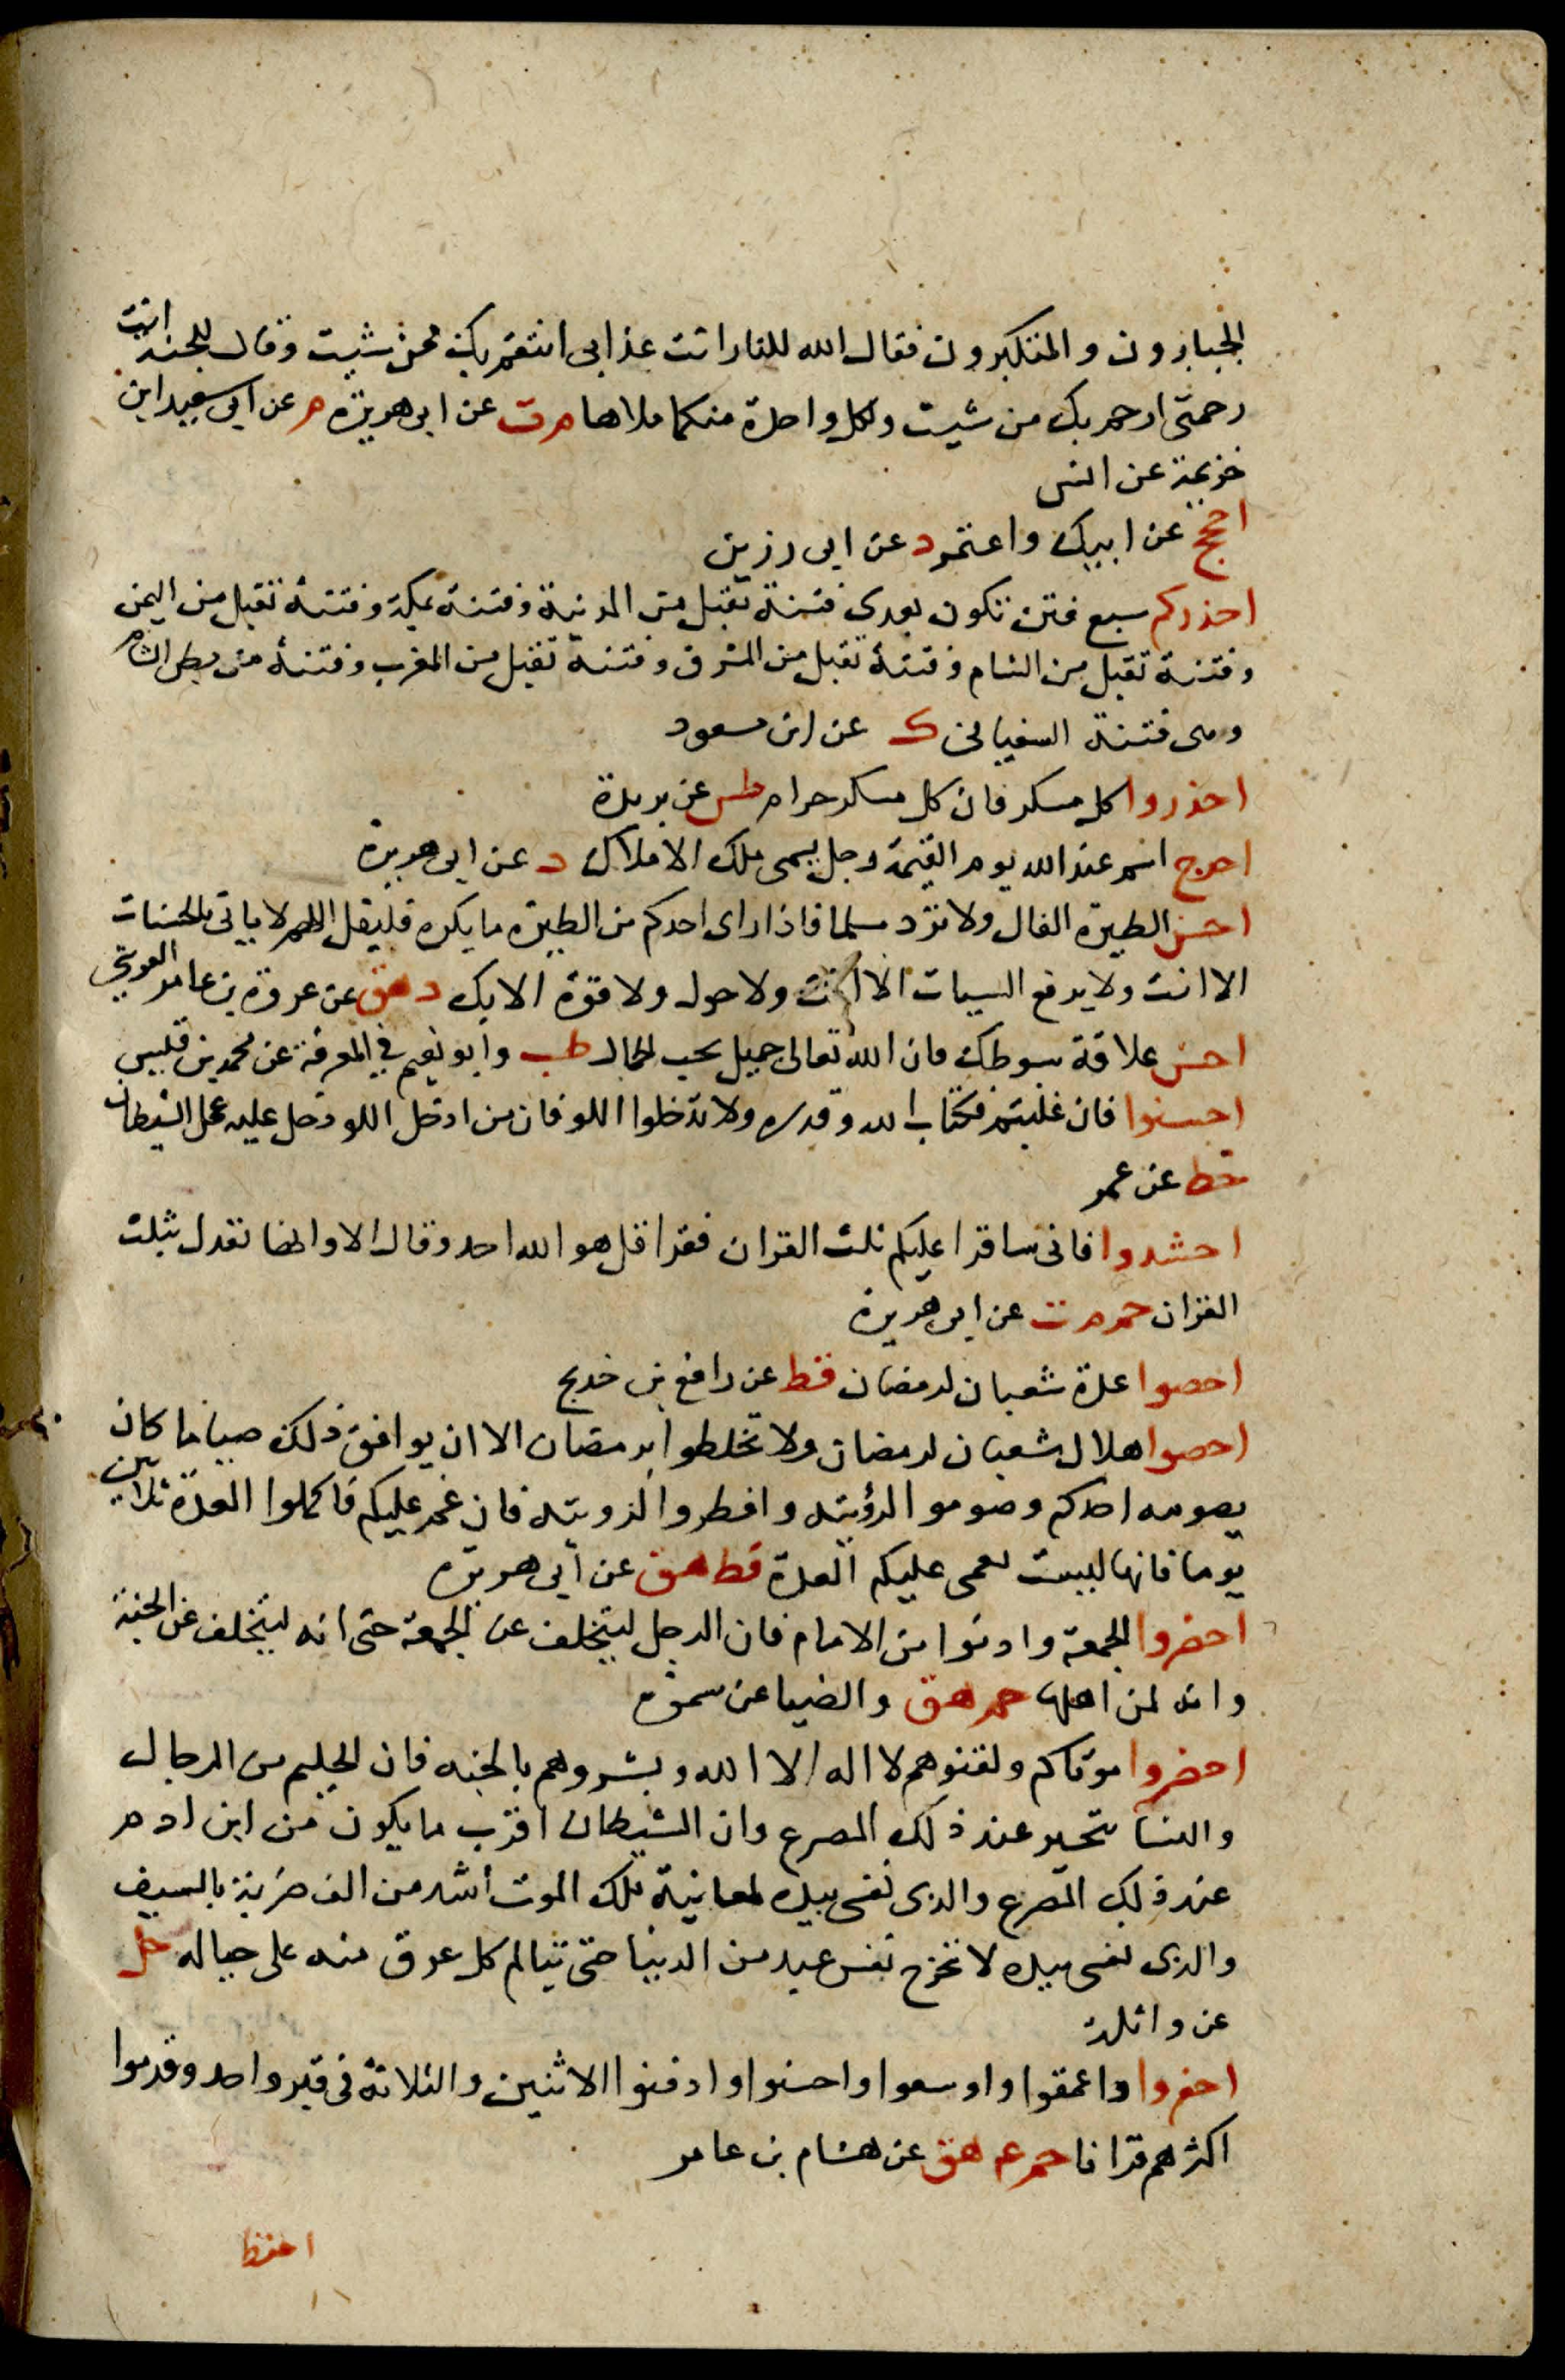 الجبارون والمتكبرون فقال الله للنار انت عذابى انتقم بك ممن شيت وقال للجنة انت
رحمتى ارحم بك من شيت ولكل واحدة منكما ملاها م ت عن ابى هريرة م عن ابى سعيد ابن
خزيمة عن انس
احجج عن ابيك واعتمر د عن ابى رزين
احذركم سبع فتن تكون بعدى فتنة تقبل من المدينة وفتنة بمكة وفتنة تقبل من اليمن
وفتنة تقبل من الشام وفتنة تقبل من المشرق وفتنة تقبل من المغرب وفتنة من بطن الشام
وهى فتنة السفيانى ك عن ابن مسعود
احذروا كل مسكر فان كل مسكر حرام طس عن بريدة
احرج اسم عند الله يوم القيمة رجل يسمى ملك الاملاك د عن ابى هريرة
احسن الطيرة الفال ولا ترد مسلما فاذا راى احدكم من الطيرة ما يكره فليقل اللهم لا ياتى بالحسنات
الا انت ولا يدفع السيات الا انت ولا حول ولا قوة الا بك د هق عن عروة بن عامر القرشى
احسن علاقة سوطك فان الله تعالى جميل يحب الجمال طب وابو نعيم فى المعرفة عن محمد بن قيس
احسنوا فان غلبتم فكتاب الله وقدره ولا تدخلوا اللو فان من ادخل اللو دخل عليه عمل الشيطان
خط عن عمر
احشدوا فانى ساقرا عليكم ثلث القران فقرا قل هو الله احد وقال الا وانها تعدل بثلث
القران حم م ت عن ابى هريرة
احصوا عدة شعبان لرمضان قط عن رافع بن خديج
احصوا هلال شعبان لرمضان ولا تخلطوا برمضان الا ان يوافق ذلك صياما كان
يصومه احدكم وصوموا لرؤيته وافطروا لرويته فان غم عليكم فاكملوا العدة ثلاثين
يوما فانها ليست تغمى عليكم العدة قط هق عن ابى هريره
احضروا الجمعة وادنوا من الامام فان الرجل ليتخلف عن الجمعة حتى انه ليتخلف عن الجنة
وانه لمن اهلها حم هق والضيا عن سمرة
احضروا موتاكم ولقنوهم لا اله الا الله وبشروهم بالجنه فان الحليم من الرجال
والنسا تحير عند ذلك المصرع وان الشيطان اقرب ما يكون من ابن ادم
عند ذلك المصرع والذى نفسى بيده لمعاينة ملك الموت أشد من الف ضربة بالسيف
والذى نفسى بيده لا تخرج نفس عبد من الدنيا حتى يتالم كل عرق منه على حياله حل
عن واثلة
احفروا واعمقوا واوسعوا واحسنوا وادفنوا الاثنين والثلاثة فى قبر واحد وقدموا
اكثرهم قرانا حم ع هق عن هشام بن عامر
احفظ